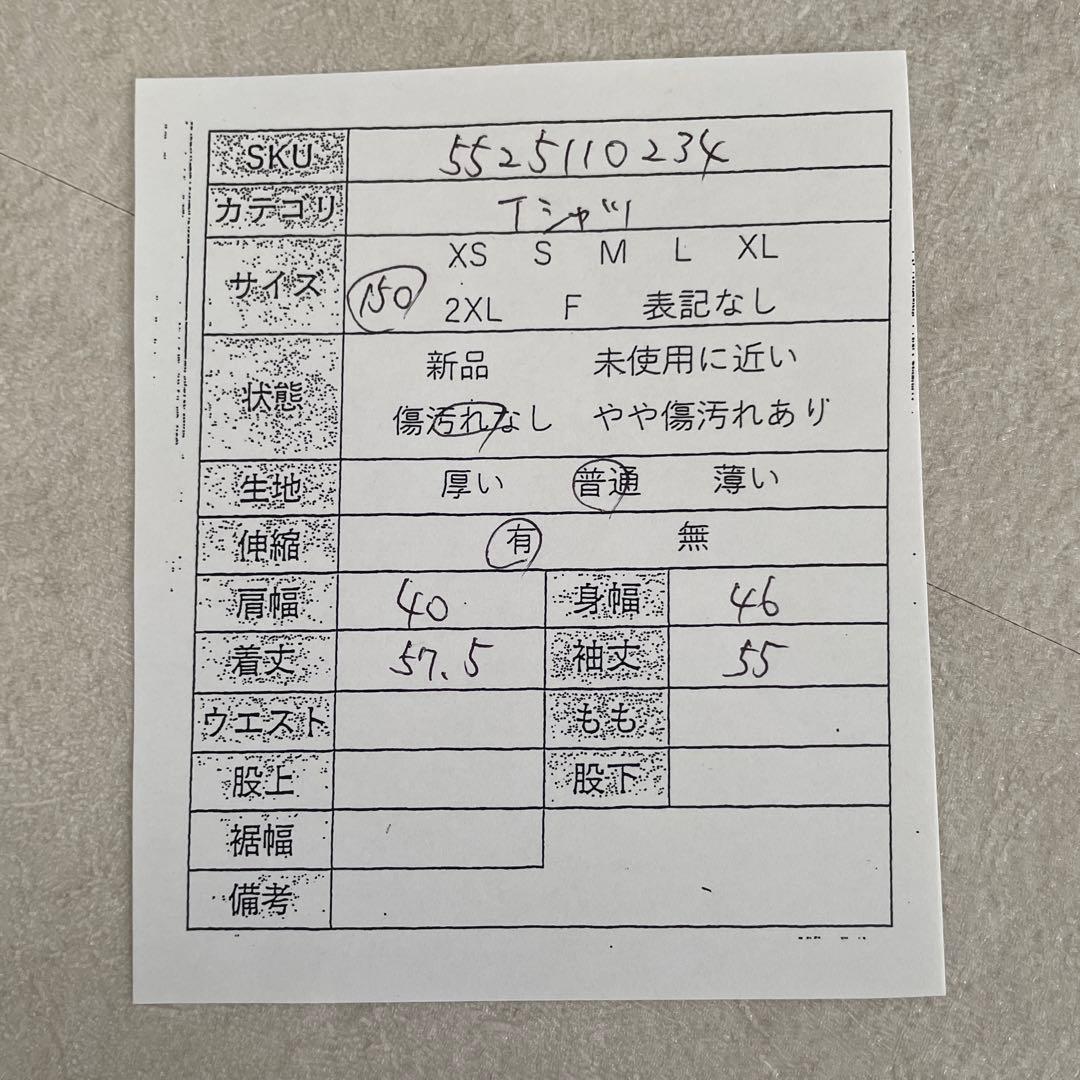 SKU 5525110234
カテゴリ Tシャツ
XS S M L XL
サイズ 150
2XL F 表記なし
新品 未使用に近い
状態
傷汚れなし やや傷汚れあり
生地 厚い 普通 薄い
伸縮 有 無
肩幅 40 身幅 46
着丈 57.5 袖丈 55
ウエスト もも
股上 股下
裾幅
備考